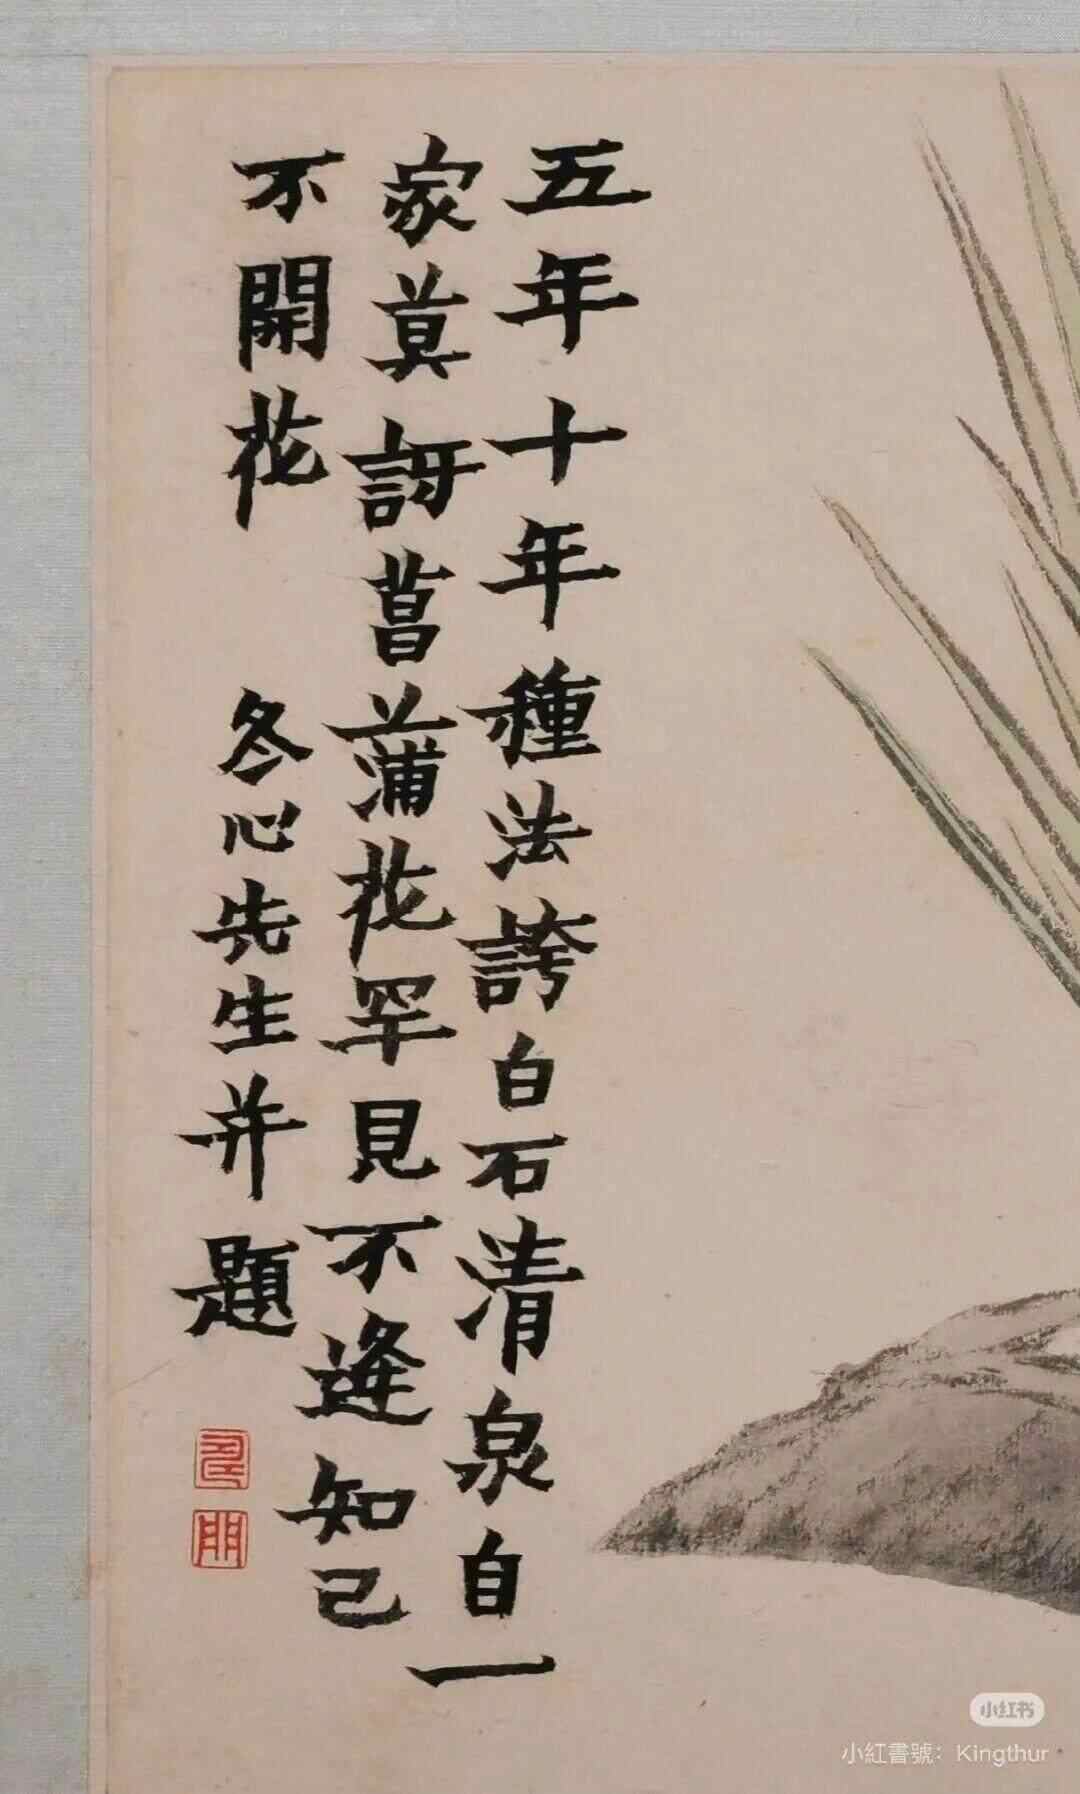 五年十年種法誇白石清泉自一
家莫訝菖蒲花罕見不逢知己
不開花 冬心先生并題
小红书
小紅書號：Kingthur